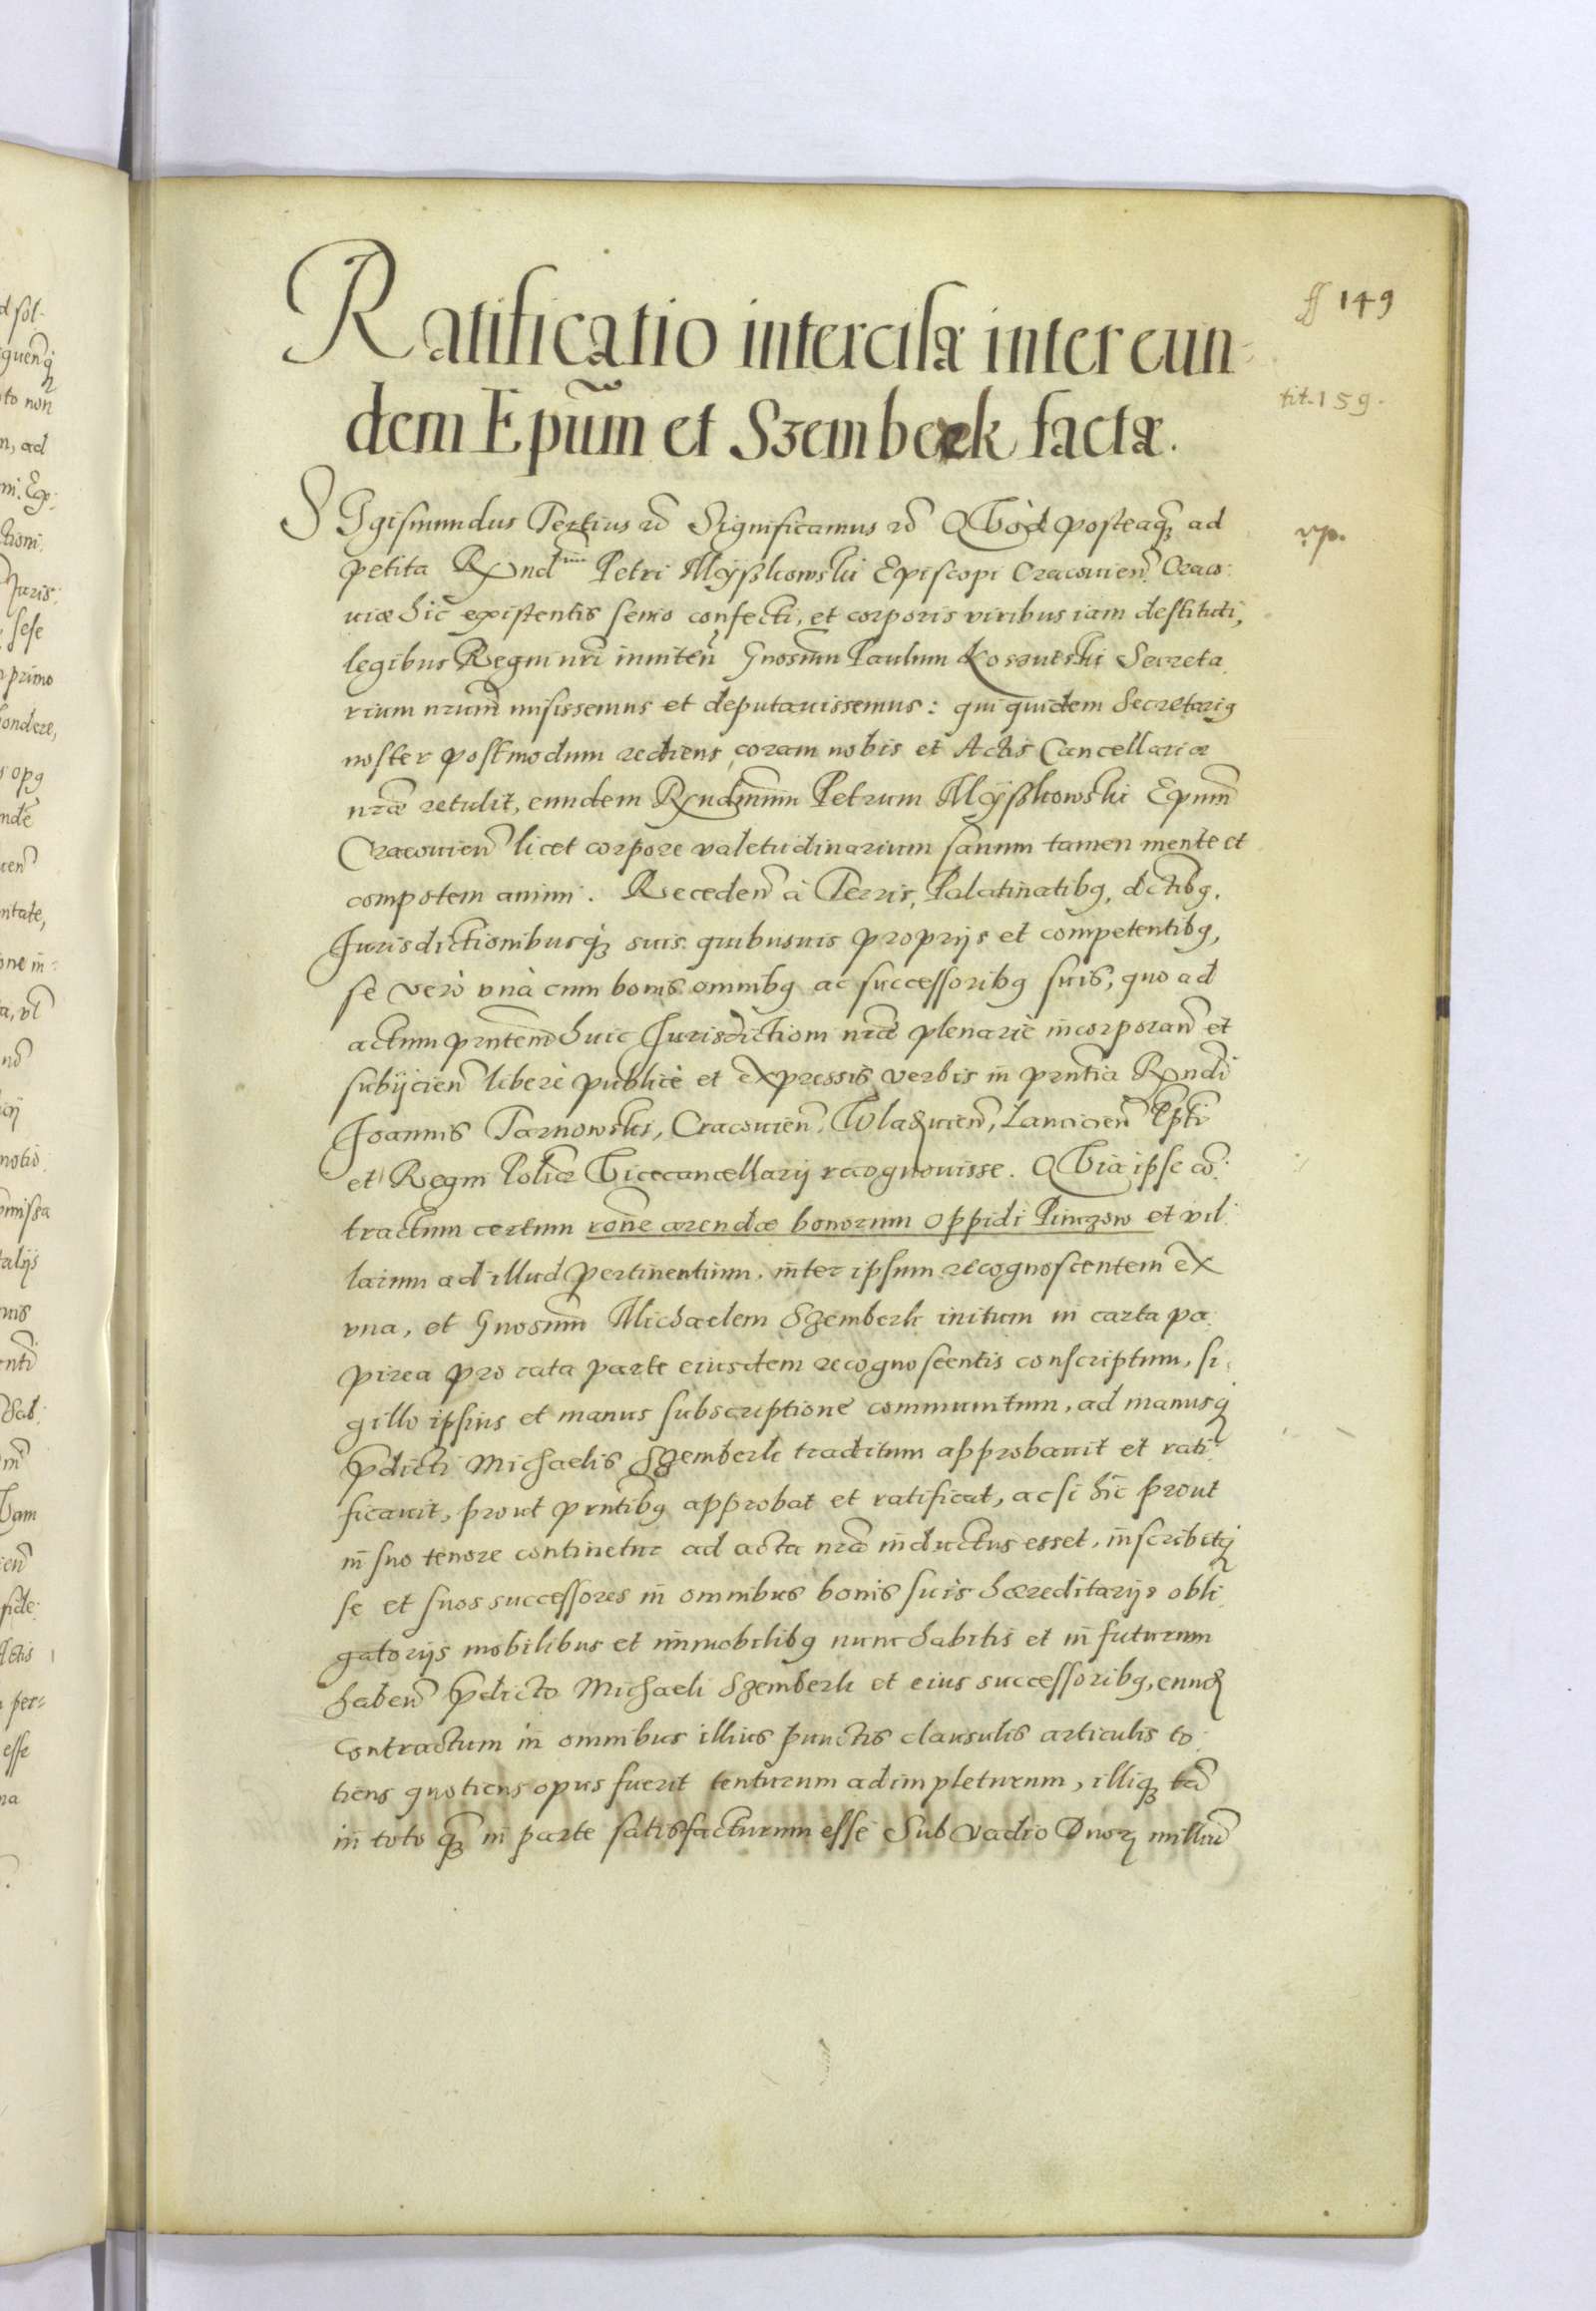 ff 149
Ratificatio intercisæ inter eun-
dem Epũm et Szembek factæ.
tit. 159.
SIgismundus Tertius etc̃ Significamus etc̃ QVòd posteaq̃ȝ ad
petita Rx̃nd^mi Petri Myßkowski Episcopi Cracouien̄. Craco:
uiæ hic existentis senio confecti, et corporis viribus iam destituti,
legibus Regni nrĩ inniteñ Gnosum̃ Paulum Kosautski Secreta.
rium nrum̃ misissemus et deputauissemus: qui quidem Secretariꝯ
noster postmodum rediens coram nobis et Actis Cancellariæ
nrãe retulit, eundem Rx̃ndmum Petrum Myßkowski Epum̃
Cracouien̄ licet corpore valetudinarium sanum tamen mente et
compotem animi. Receden̄ à Terris, Palatinatibꝯ, dctĩbꝯ,
Jurisdictionibusq̃ȝ suis quibusuis proprijs et competentibꝯ,
se verò vnà cum bonis omnibꝯ ac successoribꝯ suis, quo ad
actum prñtem huic Jurisdictioni nrãe plenariè incorporañ et
subijcien̄ liberè publicè et expressis verbis in prñtia Rx̃ndi
Joannis Tarnowski, Cracouien̄, Wladuien̄, Lancicien̄ Ppti
et Regni Poliæ Vicecancellarij recognouisse. QVia ipse cõ:
tractum certum rone arendæ bonorum oppidi Pinczow et vil:
larum ad illud pertinentium, inter ipsum recognoscentem ex
vna, et Gnosum̃ Michaelem Szemberk initum in carta pa:
pirea pro rata parte eiusdem recognoscentis conscriptum, si:
gillo ipsius et manus subscriptione communitum, ad manusq̃
p̃dicti Michaelis Szemberk traditum approbauit et rati:
ficauit, prout prñtibꝯ approbat et ratificat, acsi hic prout
in suo tenore continetur ad acta nrã inductus esset, inscribitq̃
se et suos successores in omnibus bonis suis hæreditarijs obli:
gatorijs mobilibus et immobilibꝯ nunc habitis et in futurum
haben̄ p̃dicto Michaeli Szemberk et eius successoribꝯ, eund̃
Contractum in omnibus illius punctis clausulis articulis to:
tiens quotiens opus fuerit tenturum adimpleturum, illiq̃ȝ tã
in toto q̃ȝ in parte satisfacturum esse Sub vadio Duorꝝ milliũ